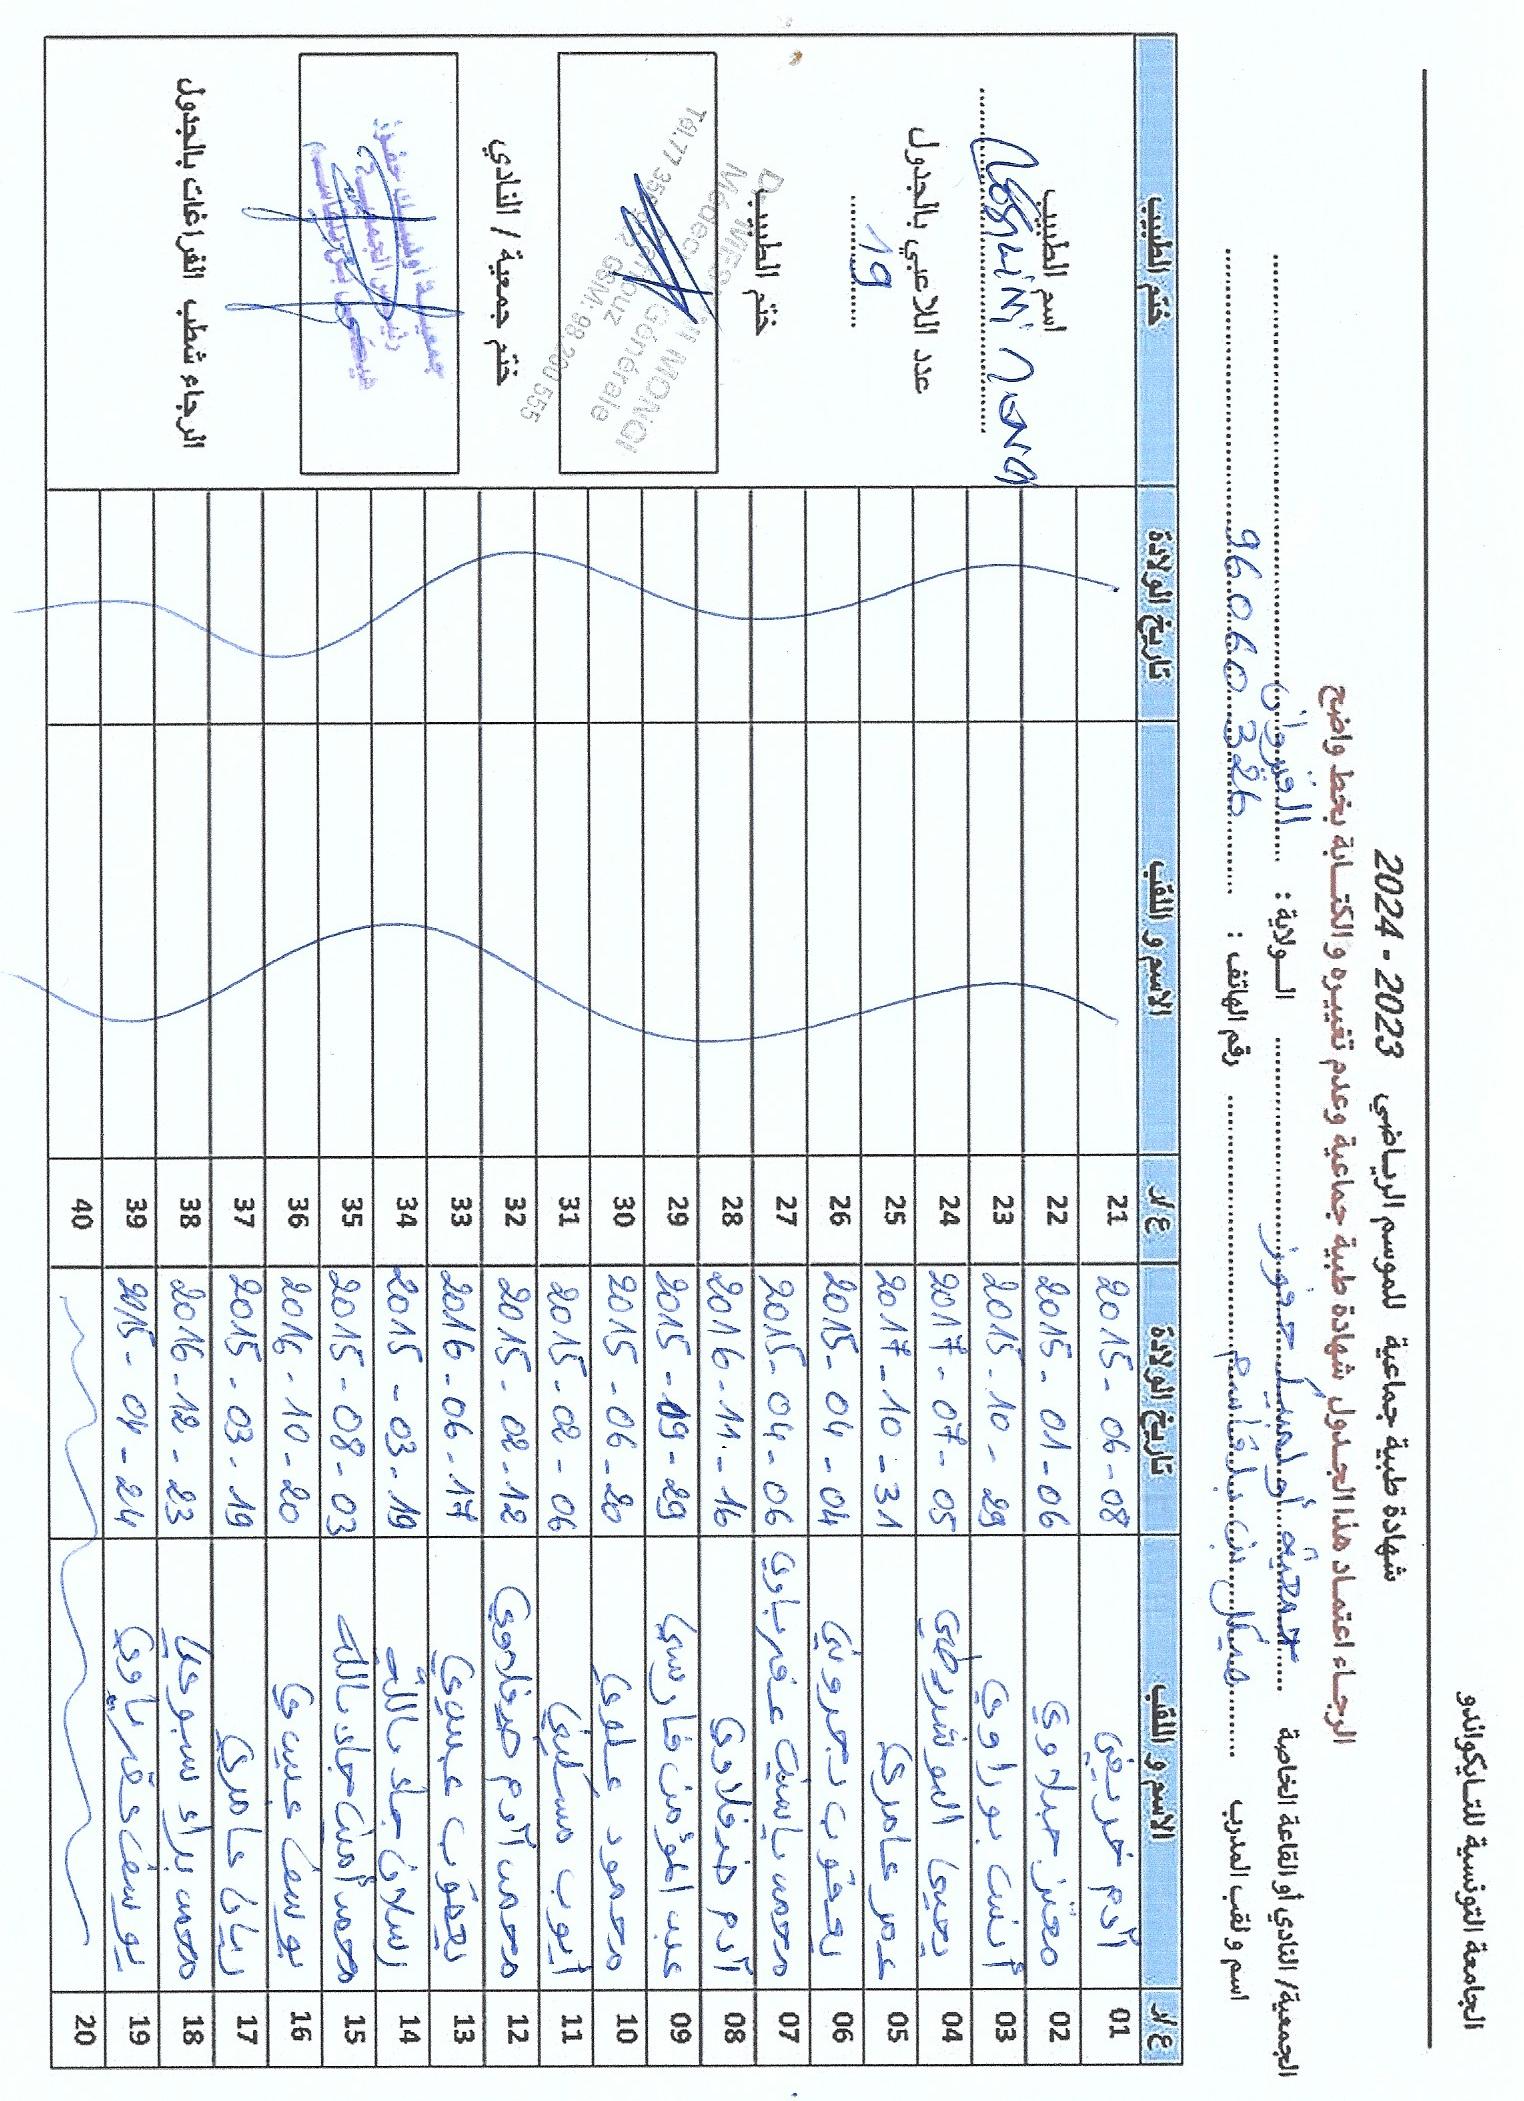 الجامعة التونسية للتايكواندو
شهادة طبية جماعية للموسم الرياضي 2023 - 2024
الرجاء اعتماد هذا الجدول شهادة طبية جماعية وعدم تغييره و الكتابة بخط واضح
الجمعية/ النادي أو القاعة الخاصة جمعية أولمبيك حفوز الولاية : القيروان
اسم و لقب المدرب هيكل بن بلقاسم رقم الهاتف : 96060326
ع/ر الاسم و اللقب تاريخ الولادة ع/ر الاسم و اللقب تاريخ الولادة ختم الطبيب
01 آدم خريفي 2015-06-08 21
02 معتز جبلاوي 2015-01-06 22
03 أنس بوراوي 2015-10-29 23
04 يحيى البوشريطي 2017-07-05 24
05 عمر عامري 2017-10-31 25
06 يعقوب بحروني 2015-04-04 26
07 محمد ياسين عقرباوي 2015-04-06 27
08 آدم ضيفلاوي 2016-11-16 28
09 عبد المؤمن فارسي 2015-09-29 29
10 محمود علوي 2015-06-20 30
11 أيوب مسكيني 2015-02-06 31
12 محمد آدم ضيفلاوي 2015-02-12 32
13 يعقوب عبيدي 2016-06-17 33
14 رسلان جاد بالله 2015-03-19 34
15 محمد أمين جاد بالله 2015-08-03 35
16 يوسف عبيدي 2016-10-20 36
17 ريان عامري 2015-03-19 37
18 محمد براء سبوعي 2016-12-23 38
19 يوسف عقرباوي 2015-04-24 39
20 40
اسم الطبيب
عدد اللاعبي بالجدول
19
ختم الطبيب
MONGI
Générale
GSM: 98 200 555
ختم جمعية / النادي
رئيس الجمعية
هيكل بن بلقاسم
الرجاء شطب الفراغات بالجدول